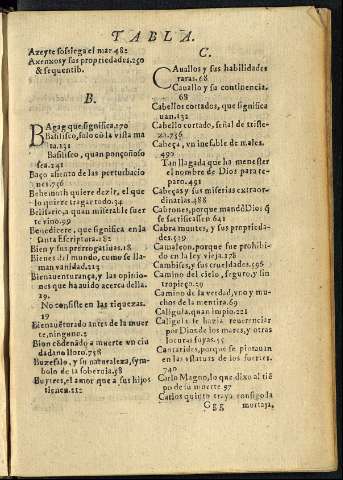 TABLA.
Azeyte sossiega el mar 482
Axenxos y sus propriedades.250
& sequentib.
B.
BAgag que significa.170
Basilisco, solo cō la vista ma
ta.131
Basilisco, quan ponçoñoso
sea.241
Baço asiento de las perturbacio
nes.736
Behemoth quiere dezir, el que
lo quiere tragar todo.34
Belisario, a quan miserable suer
te vino.99
Benedicere, que significa en la
santa Escriptura.182
Bien y sus prerrogatiuas.18
Bienes del mundo, como se lla-
man vanidad.213
Bienauenturança, y las opinio-
nes que ha auido acerca della.
19.
No consiste en las riquezas.
19
Bienauēturado antes de la muer
te, ninguno.2
Bion cōdenado a muerte vn ciu
dadano lloro.758
Buzefalo, y su naturaleza, sym-
bolo de la soberuia.58
Buytres, el amor que a sus hijos
tienen.112
C.
CAuallos y sus habilidades
raras.68
Cauallo y su continencia.
68
Cabellos cortados, que significa
uan.131
Cabello cortado, señal de triste-
za.736
Cabeça, vn inefable de males.
490
Tan llagada que ha menester
el nombre de Dios para re-
paro.491
Cabeças y sus miserias extraor-
dinarias.488
Cabrones, porque mandò Dios q̄
se sacrificassen 641
Cabra montes, y sus propieda-
des.539
Camaleon, porque fue prohibi-
do en la ley vieja.178
Cambises, y sus crueldades.596
Camino del cielo, seguro, y sin
tropieço.29
Camino de la verdad, vno y mu-
chos de la mentira.69
Caligula, quan impio.221
Caligula se hazia reuerenciar
por Dios de los mares, y otras
locuras suyas.55
Cantarides, porque se pintauan
en las estatuas de los fuertes.
740
Carlo Magno, lo que dixo al tiē
po de su muerte 97
Carlos quinto traya consigo la
Ggg mortaja,